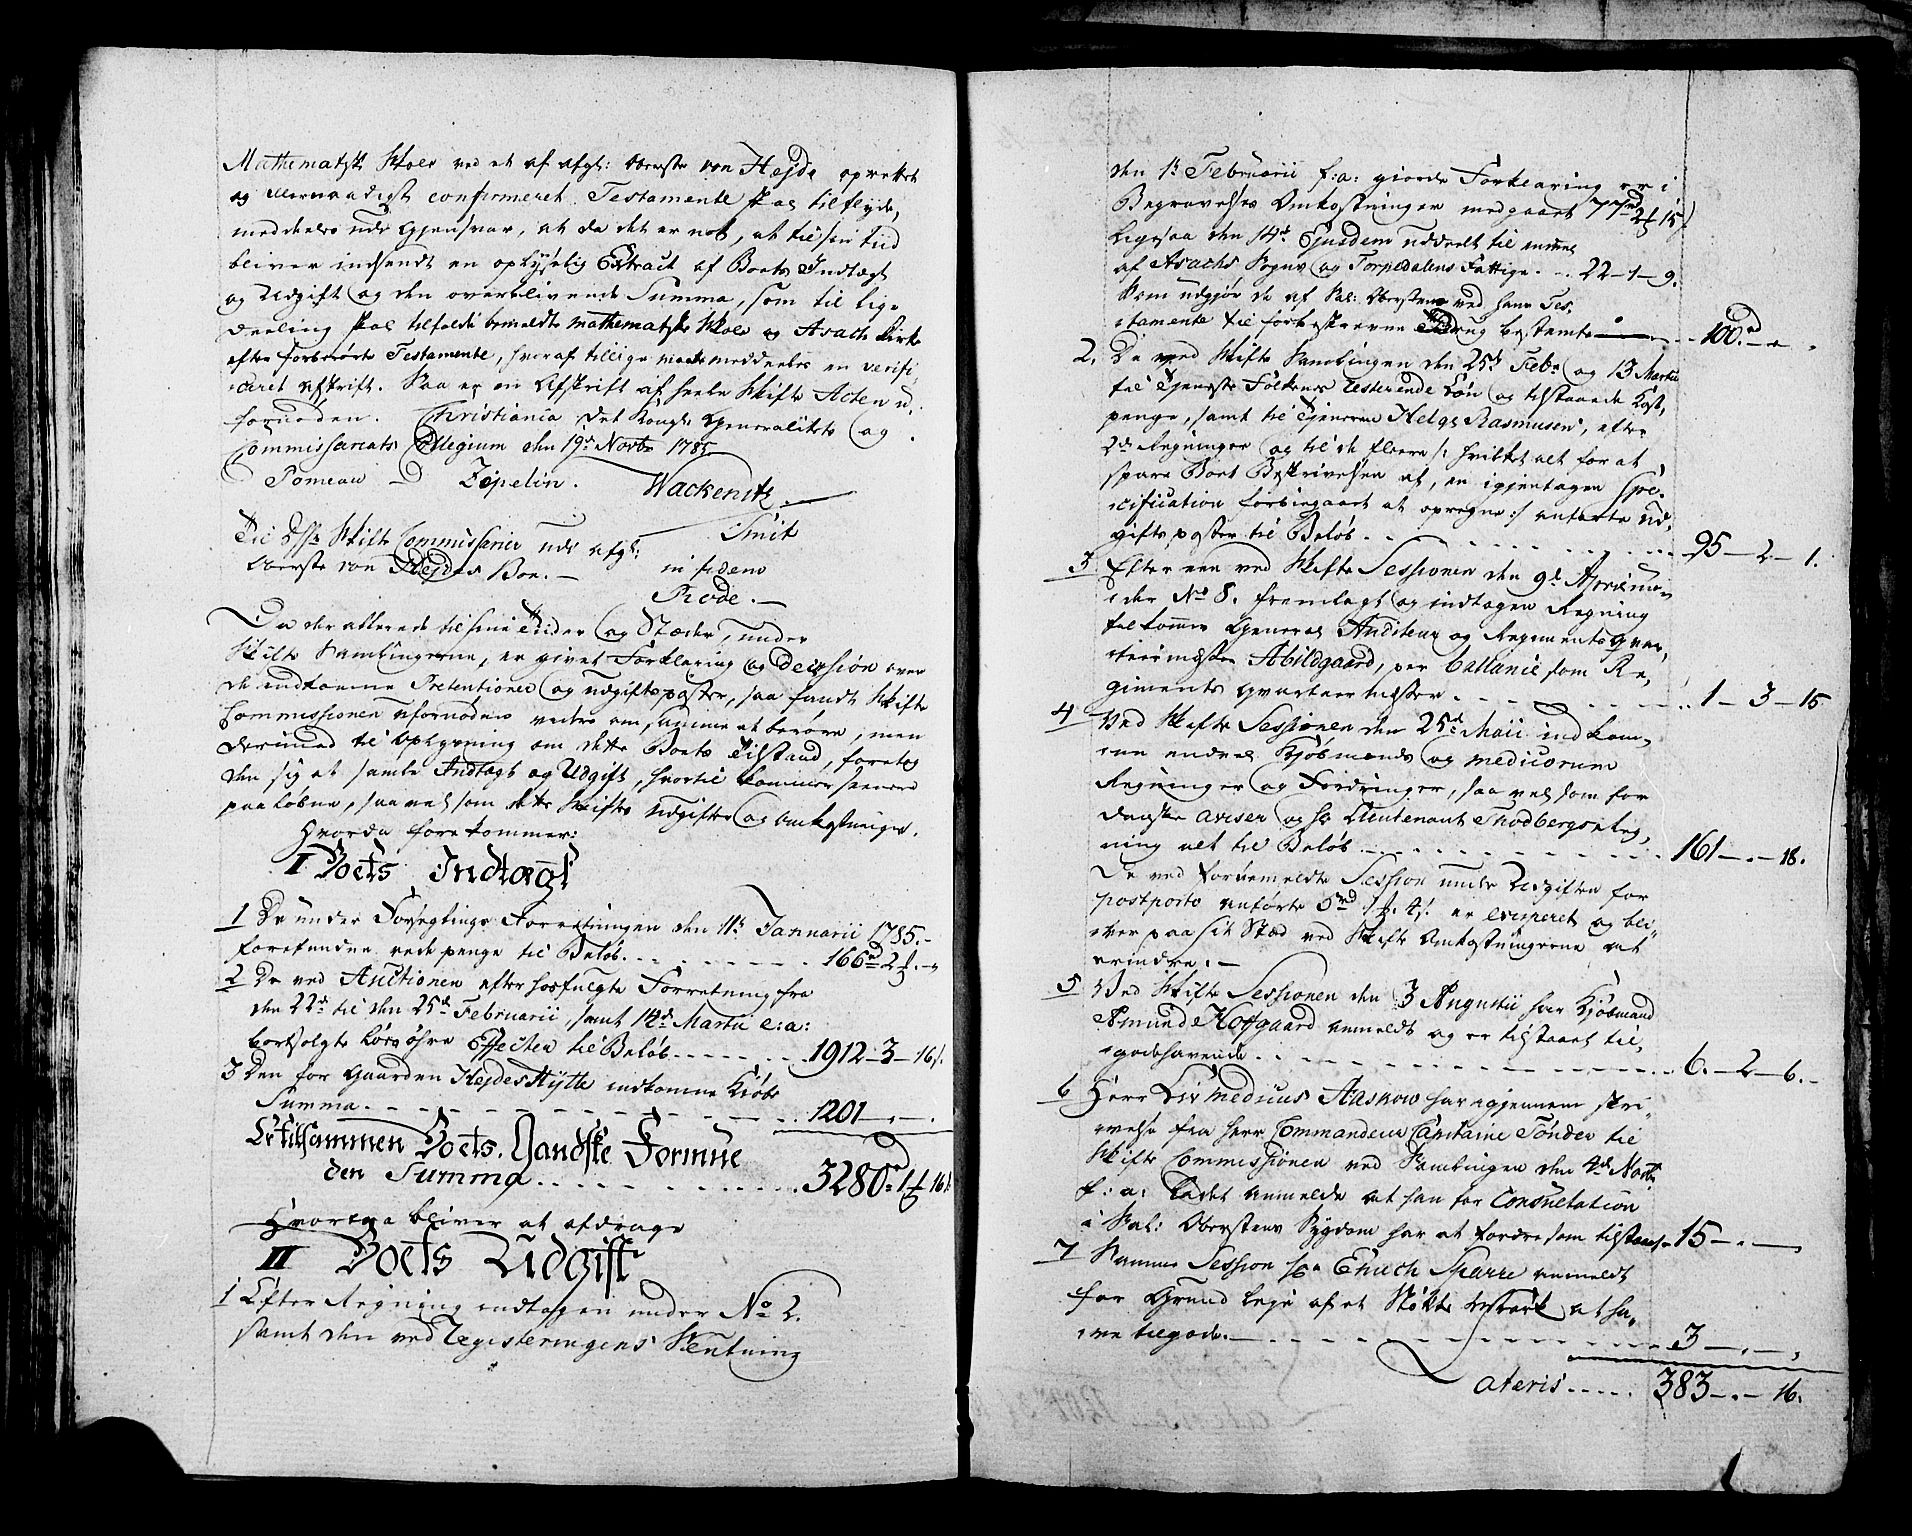 Mathematisk Skole ved et af afg: Oberste von Hejde oprettet
og allernaadigst confirmeret Testamente skal tilflyde,
meddeeles udi Gjensvar, at da det er nok, at til sin tiid
bliver indsendt en oplyselig Extract af Boets Indtægt
og Udgift og den overblivende Summa, som til lige
deeling skal tilfalde bemeldte mathematiske Skole og Asach Kirke
efter forberørte Testamente, hvoraf tillige maatte meddeeles en verifi
ceret afskrift. Saa er en Afskrift af heele Skifte Acten u-
fornøden. Christiania det Kongl: Generalitets og
Commissariats Collegium den 19de Novbr 1785
Pomeau Zepelin. Wackenitz.
Smit
Til Dhr Skifte Commissarier udi afg:
Oberste von Hejdes Boe.
in fidem
Rode.
Da der allerede til sine Tiider og Stæder, under
Skifte Samlingerne, er givet Forklaring og Decission over
de indkomne Pretentioner og udgifts poster, saa fandt Skifte
Commissionen ufornøden videre om samme at berøre, men
derimod til Oplysning om dette Boets Tilstand, foretog
den sig at samle Indtægt og Udgift, hvortil kommer seenere
paaløbne, saavel som dette Skiftes Udgifter og omkostninger.
Hvorda forekommer:
I Boets Indtægt
1 De under Forseglings Forretningen den 11te Januarii 1785.
forefundne rede penge til Beløb 166rd 2
2 De ved Auctionen efter hosfulgte Forretning fra
den 22de til den 25de Februarii, samt 14de Martii e:a:
bortsolgte Løsøhre Effecter til Beløb 1912-3-16
3 Den for Gaarden HejdesHytte indkomne Kiøbe
Summa 1201
Er tilsammen Boets Gandske Formue
den Summa 3280 1 16
Hvoraa bliver at afdrage
II Boets Udgift
1 Efter Regning indtagen under No 2.
samt den ved Registeringens Slutning
den 1te Februarii f:a: giorde Forklaring er i
Begravelses Omkostninger medgaaet 77rd 2 15
Ligesaa den 14de Ejusdem uddeelt til
af Asachs Sogns og Torpedalens Fattige 22-1-9.
Som udgjør de af Sal: Obersten ved hans Tes-
tamente til forbeskrevne Brug bestemte 100
2. De ved Skifte Samlingen den 25de Febr og 13 Martii
til Tjeneste Folkenes resterende Løn og tilstaaede Kost-
penge, samt til Tjeneren Helge Rasmusen, efter
2de Regninger og til de fleere /: hvilket alt for at
spare Boet Beskrivelsen af, en igjentagen Spe-
cification forbiegaaes at opregne :/ anførte Ud-
gifts poster til Beløb 95-2-1.
3 Efter een ved Skifte Sessionen den 9de April
under No 8. fremlagt og indtagen Regning
tilkommer General Auditeur og Regimentsqvar-
teermester Abildgaard, per Callanie som Re-
giments Qvarteermester 1-3-15
4 Ved Skifte Sessionen den 25de Maii indkom-
ne endeel Kjøbmænds og medicorum
Regninger og Fordringer, saavel som for
danske aviser og Hr Lieutenant Thodbergs Reg-
ning alt til Beløb 161-.-18.
De ved fornemeldte Session under Udgiften for
postporto anførte 5rd 1 4 er cuperet og bli-
ver paa sit Stæd ved Skifte Omkostningerne at
erindre.
5 Ved Skifte Sessionen den 3 Augustii har Kjøbmand
Amund Hofgaard anmeldt og er tilstaaet til-
godehavende 6.-2-6.
6 Herr Liv Medicus Anskow har igjennem skri-
velse fra Herr Commandeur Capitaine Tønder til
Skifte Commissionen ved Samlingen den 4de Novbr
f:a: ladet anmelde at han for Consultation
i Sal: Oberstens Sygdom har at fordre som tilstaaes 15
7 Samme Session har Enich Sparre anmeldt
for Grund Leje af et Støkke at ha-
ve tilgode. 3
Lateris 383-.-16.